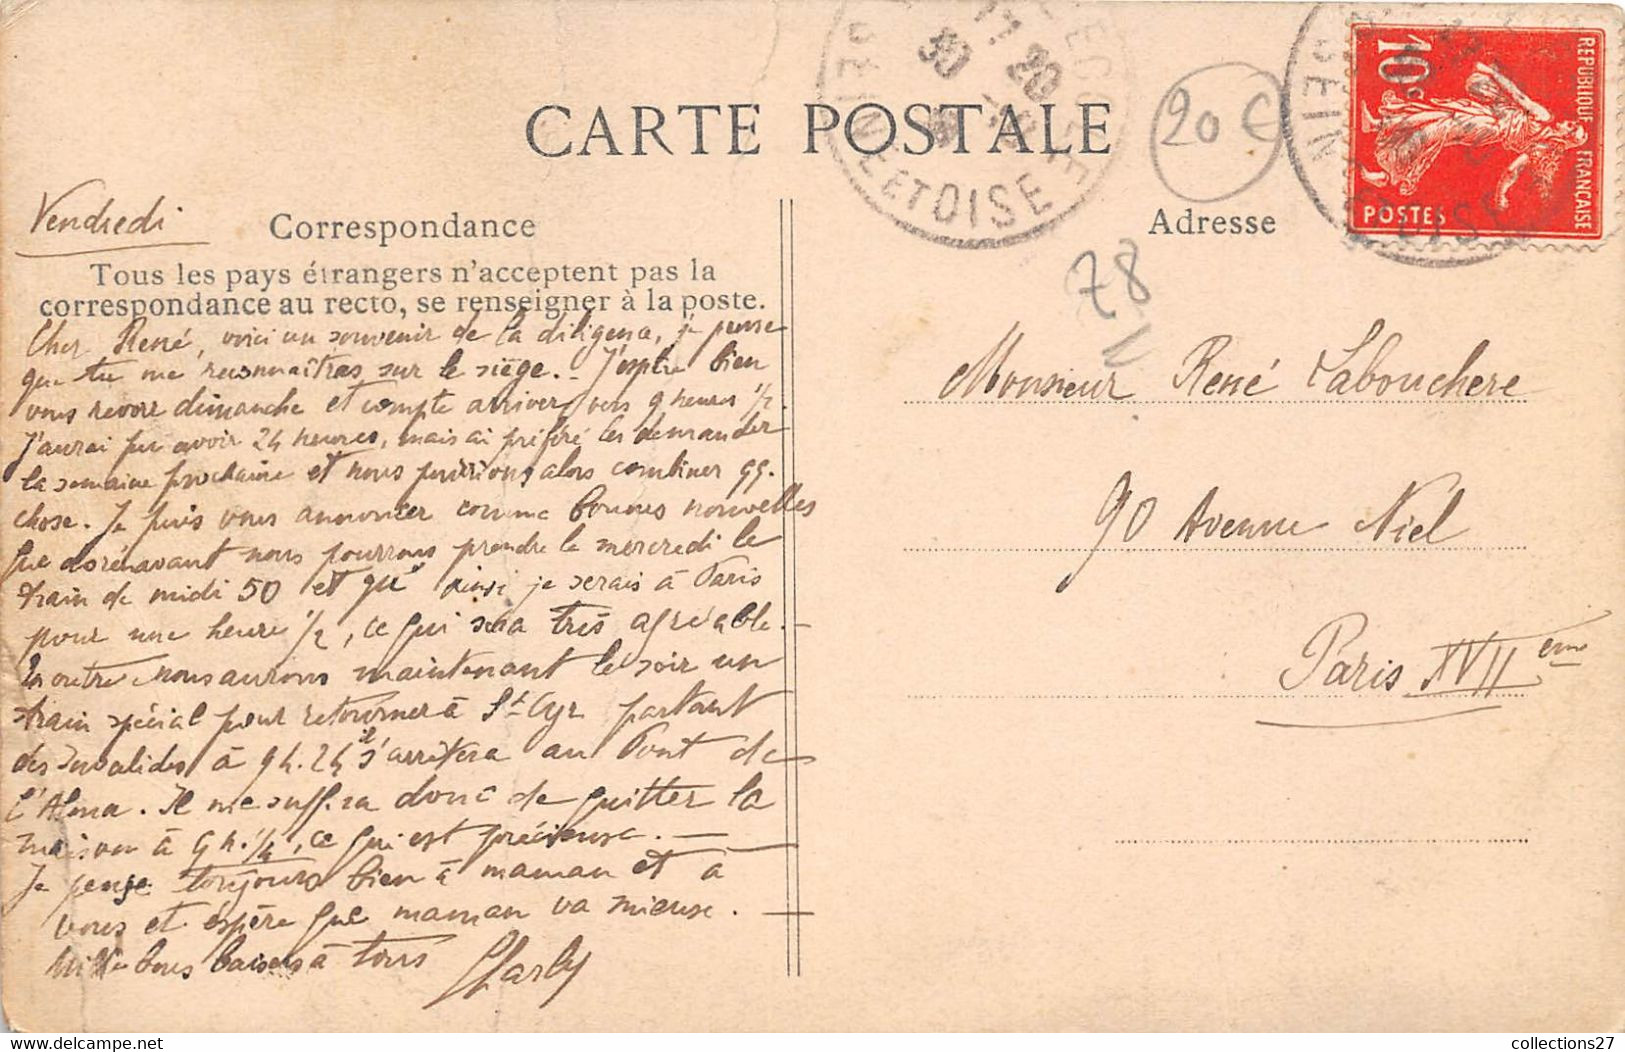 CARTE POSTALE
20 €
10c
REPUBLIQUE FRANÇAISE
POSTES
SEINE ET OISE
Vendredi
Correspondance
Tous les pays étrangers n'acceptent pas la
correspondance au recto, se renseigner à la poste.
Cher René, voici un souvenir de la diligence, je pense
que tu me reconnaîtras sur le siège. _ J'espère bien
vous revoir dimanche et compte arriver vers 9 heures 1/2.
J'aurai pu avoir 24 heures, mais ai préféré les demander
la semaine prochaine et nous pourrions alors combiner qq.
chose. Je puis vous annoncer comme bonnes nouvelles
que dorénavant nous pourrons prendre le mercredi le
train de midi 50 et qu'ainsi je serais à Paris
pour une heure 1/2, ce qui sera très agréable. _
En outre nous aurons maintenant le soir un
train spécial pour retourner à St Cyr partant
des Invalides à 9h.24 il s'arrêtera au Pont de
l'Alma. Il me suffira donc de quitter la
maison à 9h.1/4, ce qui est précieuse. _
Je pense toujours bien à maman et à
vous et espère que maman va mieux. _
Mille bons baisers à tous Charly
Adresse
78
N
Monsieur René Labouchere
90 Avenue Niel
Paris XVIIème
collections27